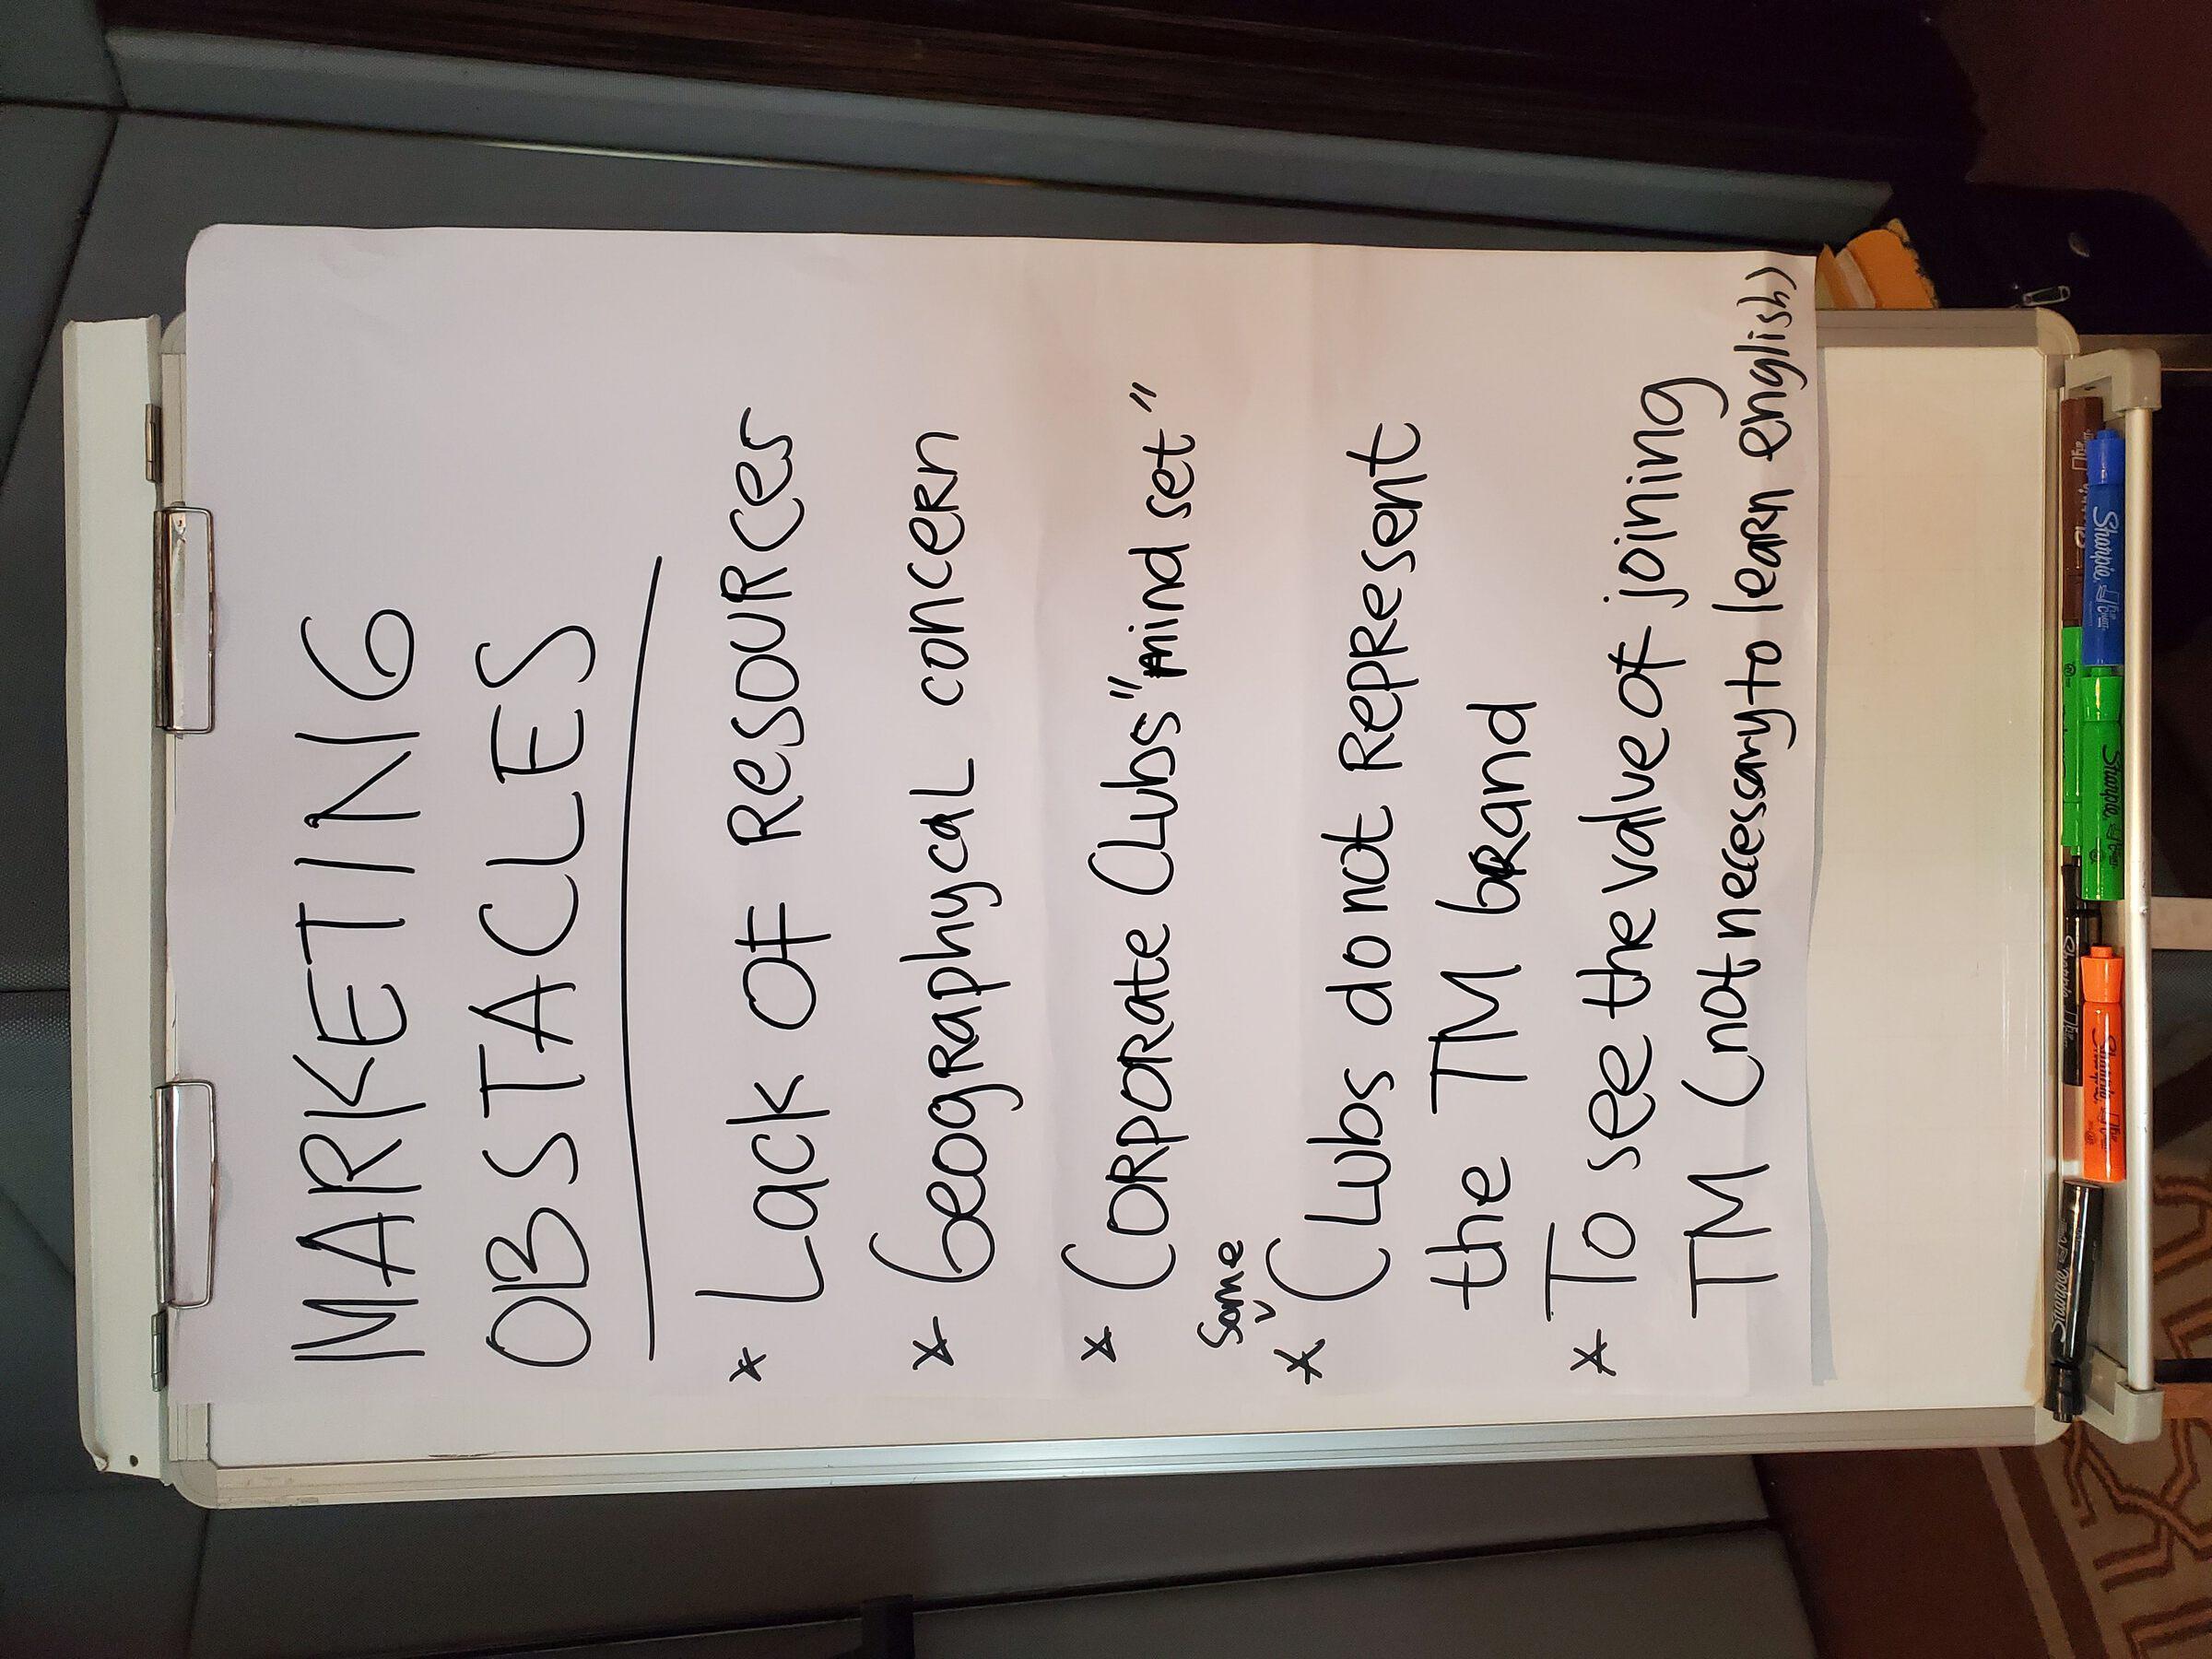 MARKETING
OBSTACLES
* Lack OF Resources
* GeographycaL concern
* Corporate CLubs "mind set"
Some
* CLubs do not Represent
the TM bRand
* To see the value of joining
TM (not necessary to learn english)
Sharpie
Sharpie
Sharpie
Sharpie
Sharpie